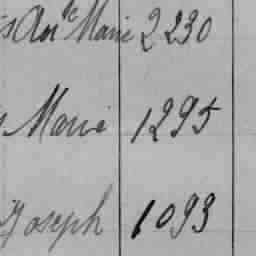 Anne Marie 2230
Marie 1295
Joseph 1093